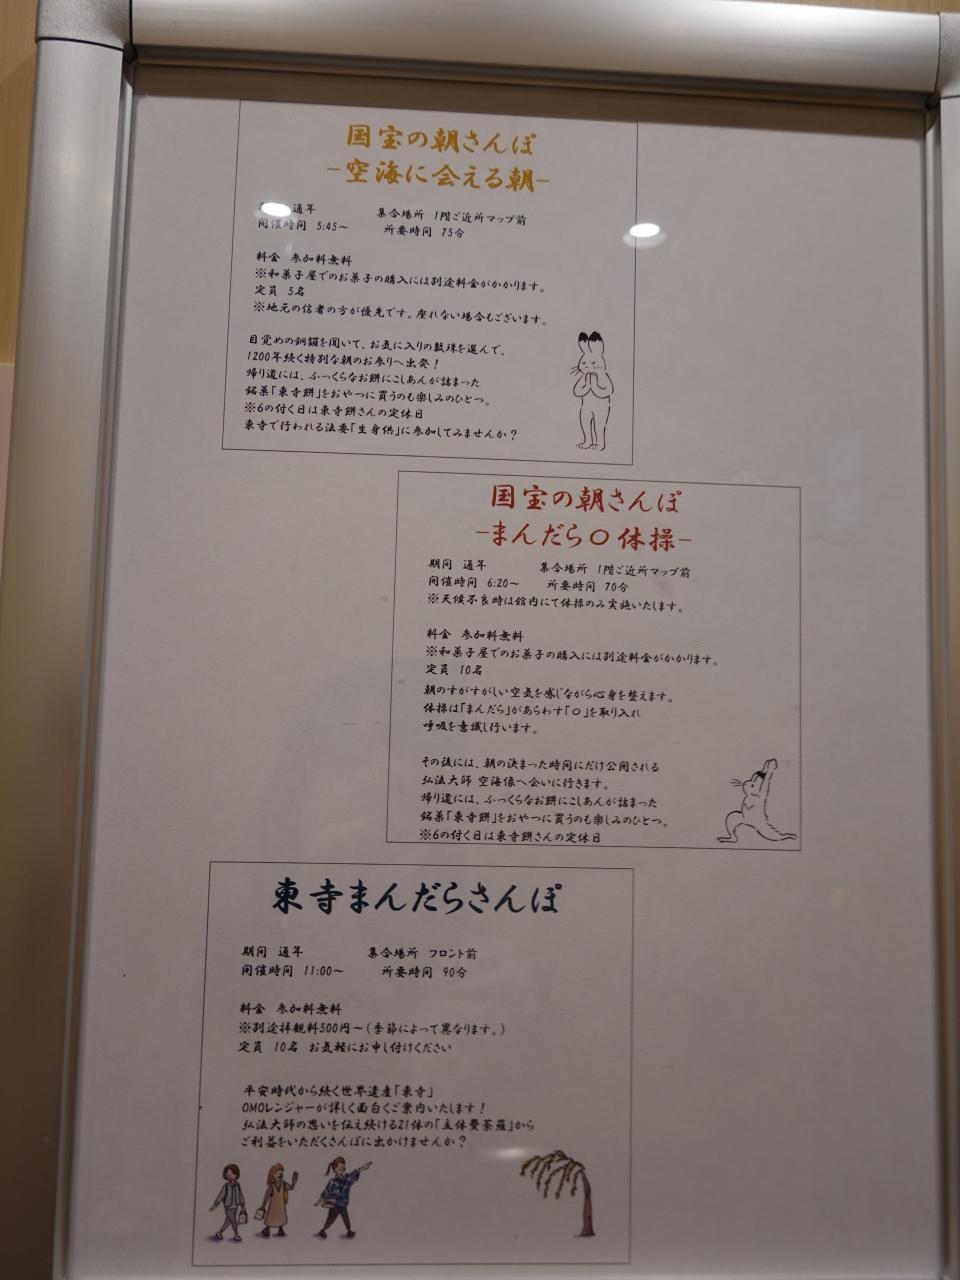 国宝の朝さんぽ
-空海に会える朝-
通年 集合場所 1階ご近所マップ前
開催時間 5:45～ 所要時間 75分
料金 参加料無料
※和菓子屋でのお菓子の購入には別途料金がかかります。
定員 5名
※地元の信者の方が優先です。座れない場合もございます。
目覚めの銅鑼を聞いて、お気に入りの数珠を選んで、
1200年続く特別な朝のお参りへ出発！
帰り道には、ふっくらなお餅にこしあんが詰まった
銘菓「東寺餅」をおやつに買うのも楽しみのひとつ。
※6の付く日は東寺餅さんの定休日
東寺で行われる法要「生身供」に参加してみませんか？
国宝の朝さんぽ
-まんだら〇体操-
期間 通年 集合場所 1階ご近所マップ前
開催時間 6:20～ 所要時間 70分
※天候不良時は館内にて体操のみ実施いたします。
料金 参加料無料
※和菓子屋でのお菓子の購入には別途料金がかかります。
定員 10名
朝のすがすがしい空気を感じながら心身を整えます。
体操は「まんだら」があらわす「〇」を取り入れ
呼吸を意識し行います。
その後には、朝の決まった時間にだけ公開される
弘法大師 空海像へ会いに行きます。
帰り道には、ふっくらなお餅にこしあんが詰まった
銘菓「東寺餅」をおやつに買うのも楽しみのひとつ。
※6の付く日は東寺餅さんの定休日
東寺まんだらさんぽ
期間 通年 集合場所 フロント前
開催時間 11:00～ 所要時間 90分
料金 参加料無料
※別途拝観料500円～(季節によって異なります。)
定員 10名 お気軽にお申し付けください
平安時代から続く世界遺産「東寺」
OMOレンジャーが詳しく面白くご案内いたします！
弘法大師の思いを伝え続ける21体の「立体曼荼羅」から
ご利益をいただくさんぽに出かけませんか？